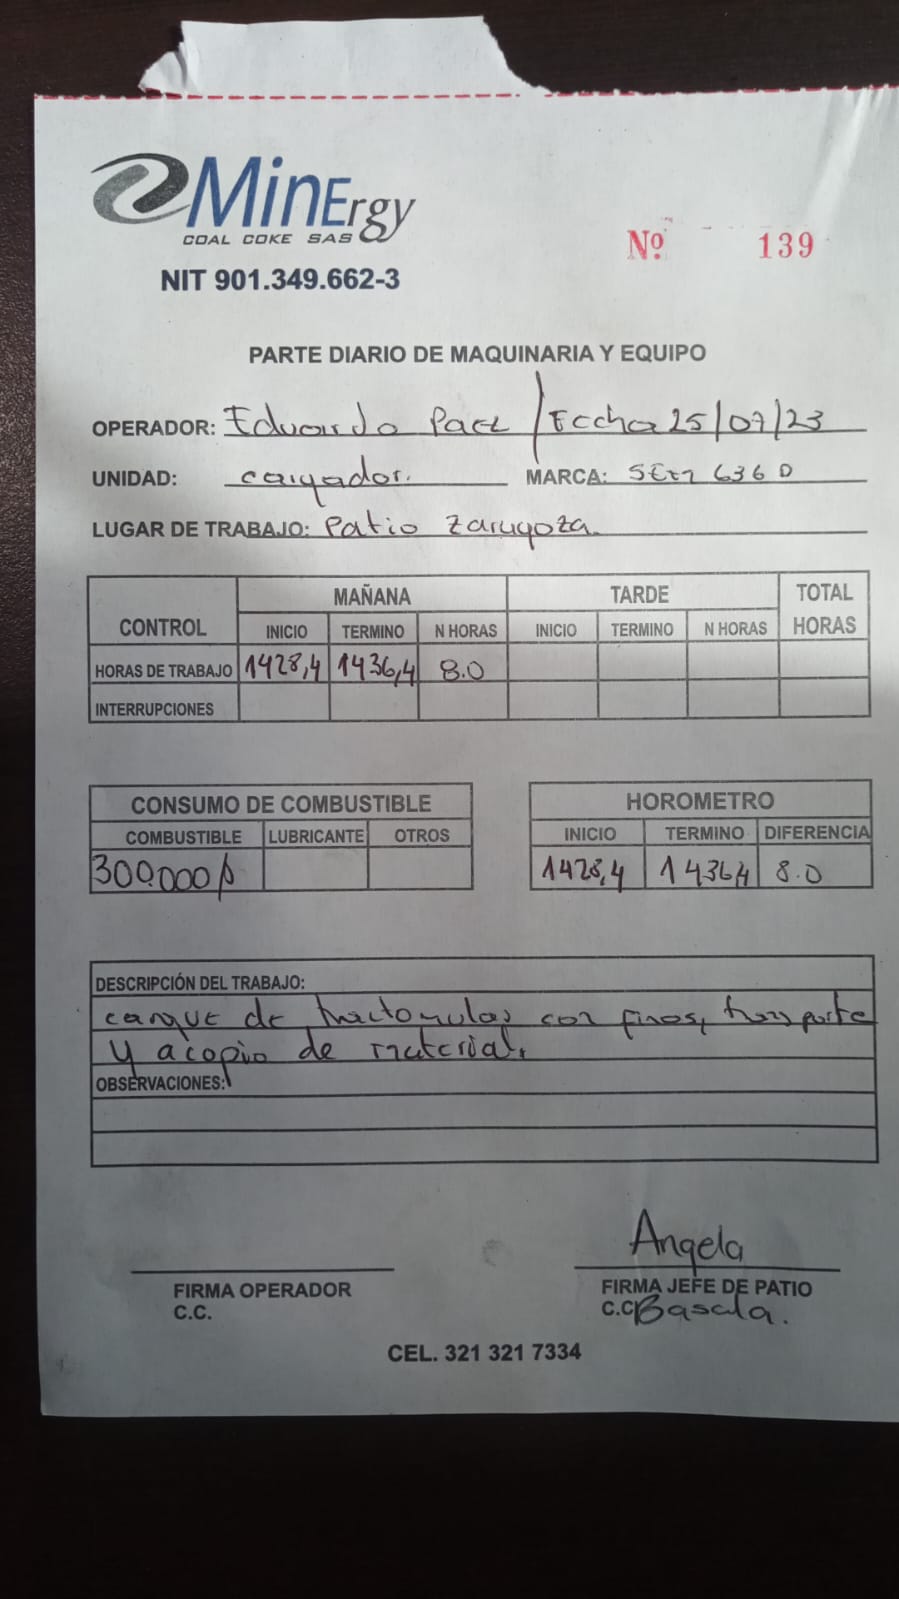 MinErgy
COAL COKE SAS
NIT 901.349.662-3
Nº 139
PARTE DIARIO DE MAQUINARIA Y EQUIPO
OPERADOR: Eduardo Paez / Fecha 25/07/23
UNIDAD: cargador. MARCA: SEM 636 D
LUGAR DE TRABAJO: Patio Zaragoza.
CONTROL MAÑANA TARDE TOTAL HORAS
INICIO TERMINO N HORAS INICIO TERMINO N HORAS
HORAS DE TRABAJO 1428,4 1436,4 8.0
INTERRUPCIONES
CONSUMO DE COMBUSTIBLE
COMBUSTIBLE LUBRICANTE OTROS
300.000
HOROMETRO
INICIO TERMINO DIFERENCIA
1428,4 1436,4 8.0
DESCRIPCIÓN DEL TRABAJO:
cargue de tractomulas con finos, transporte
y acopio de material.
OBSERVACIONES:
Angela
FIRMA OPERADOR FIRMA JEFE DE PATIO
C.C. C.C. Bascula.
CEL. 321 321 7334